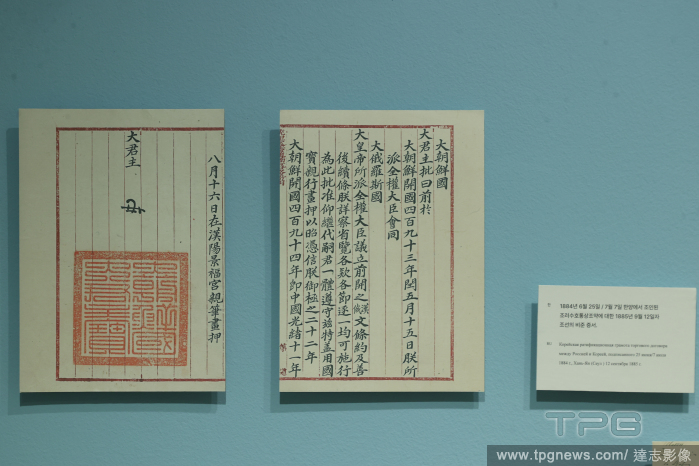 大朝鮮國
大君主批曰前於
大朝鮮開國四百九十三年閏五月十五日朕所
派全權大臣會同
大俄羅斯國
大皇帝所派全權大臣議立前開之漢俄文條約及善
後續條朕詳察省覽各款各節逐一均可施行
為此批准仰繼代嗣君一體遵守茲特蓋用國
寶親行畫押以昭憑信朕御極之二十二年
大朝鮮開國四百九十四年即中國光緒十一年
八月十六日在漢陽景福宮親筆畫押
大君主
1884년 6월 25일 / 7월 7일 한양에서 조인된
조러수호통상조약에 대한 1885년 9월 12일자
조선의 비준 증서.
Корейская ратификационная грамота торгового договора
между Россией и Кореей, подписанного 25 июня/7 июля
1884 г., Хань-Ян (Сеул) / 12 сентября 1885 г.
TPG
www.tpgnews.com/達志影像